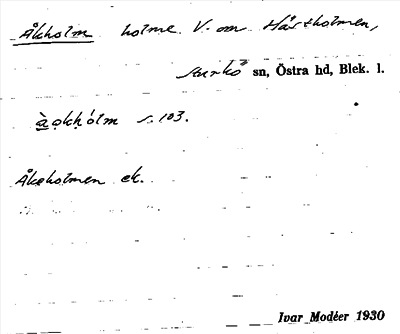 Åkholm holme V. om Hästholmen,
Sturkö sn, Östra hd, Blek. l.
àokhólm s. 103.
Åkeholmen ek.
Ivar Modéer 1930